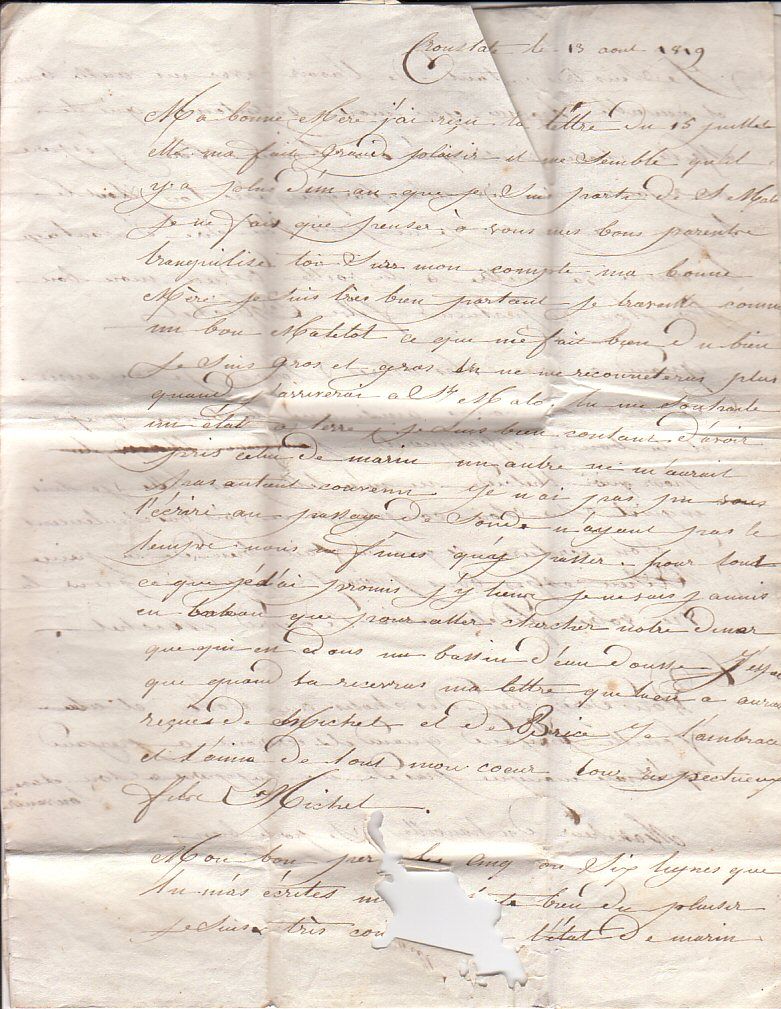 Cronstatd le 13 aout 1819
Ma bonne Mère j'ai reçu ta lettre du 15 juillet
Elle ma fait grand plaisir il me semble qu'il
y a plus d'un an que je suis parti de St Malo
je ne fais que penser à vous mes bons parentse
tranquilise toi surr mon compte ma bonne
Mère je suis très bien partout je travaille comme
un bon Matelot ce que me fait bien du bien
je suis gros et gras tu ne me reconneteras plus
quand j'arriverai a St Malo tu me souhaite
un état a terre je suis bien contant d'avoir
pris celui de marin un autre ne m'aurait
pas autant couvenu je n'ai pas pu
t'écrire au passage de Sonde n'ayant pas le
tempse nous ne fimes que passer pour tout
ce que je t'ai promis j'y tiens je ne vais jamais
en bateau que pour aller charcher notre
que qui en dans un bassin d'eau dousse J'espere
que quand ta recevras ma lettre que tu en a auras
reçues de Michel et de Brice je t'ambrace
et t'aime de tout mon coeur tou respectueux
filse Michel
Mon bon per les cinq ou six lignes que
tu m'as écrites bien du plaisir
je suis très con l'état de marin